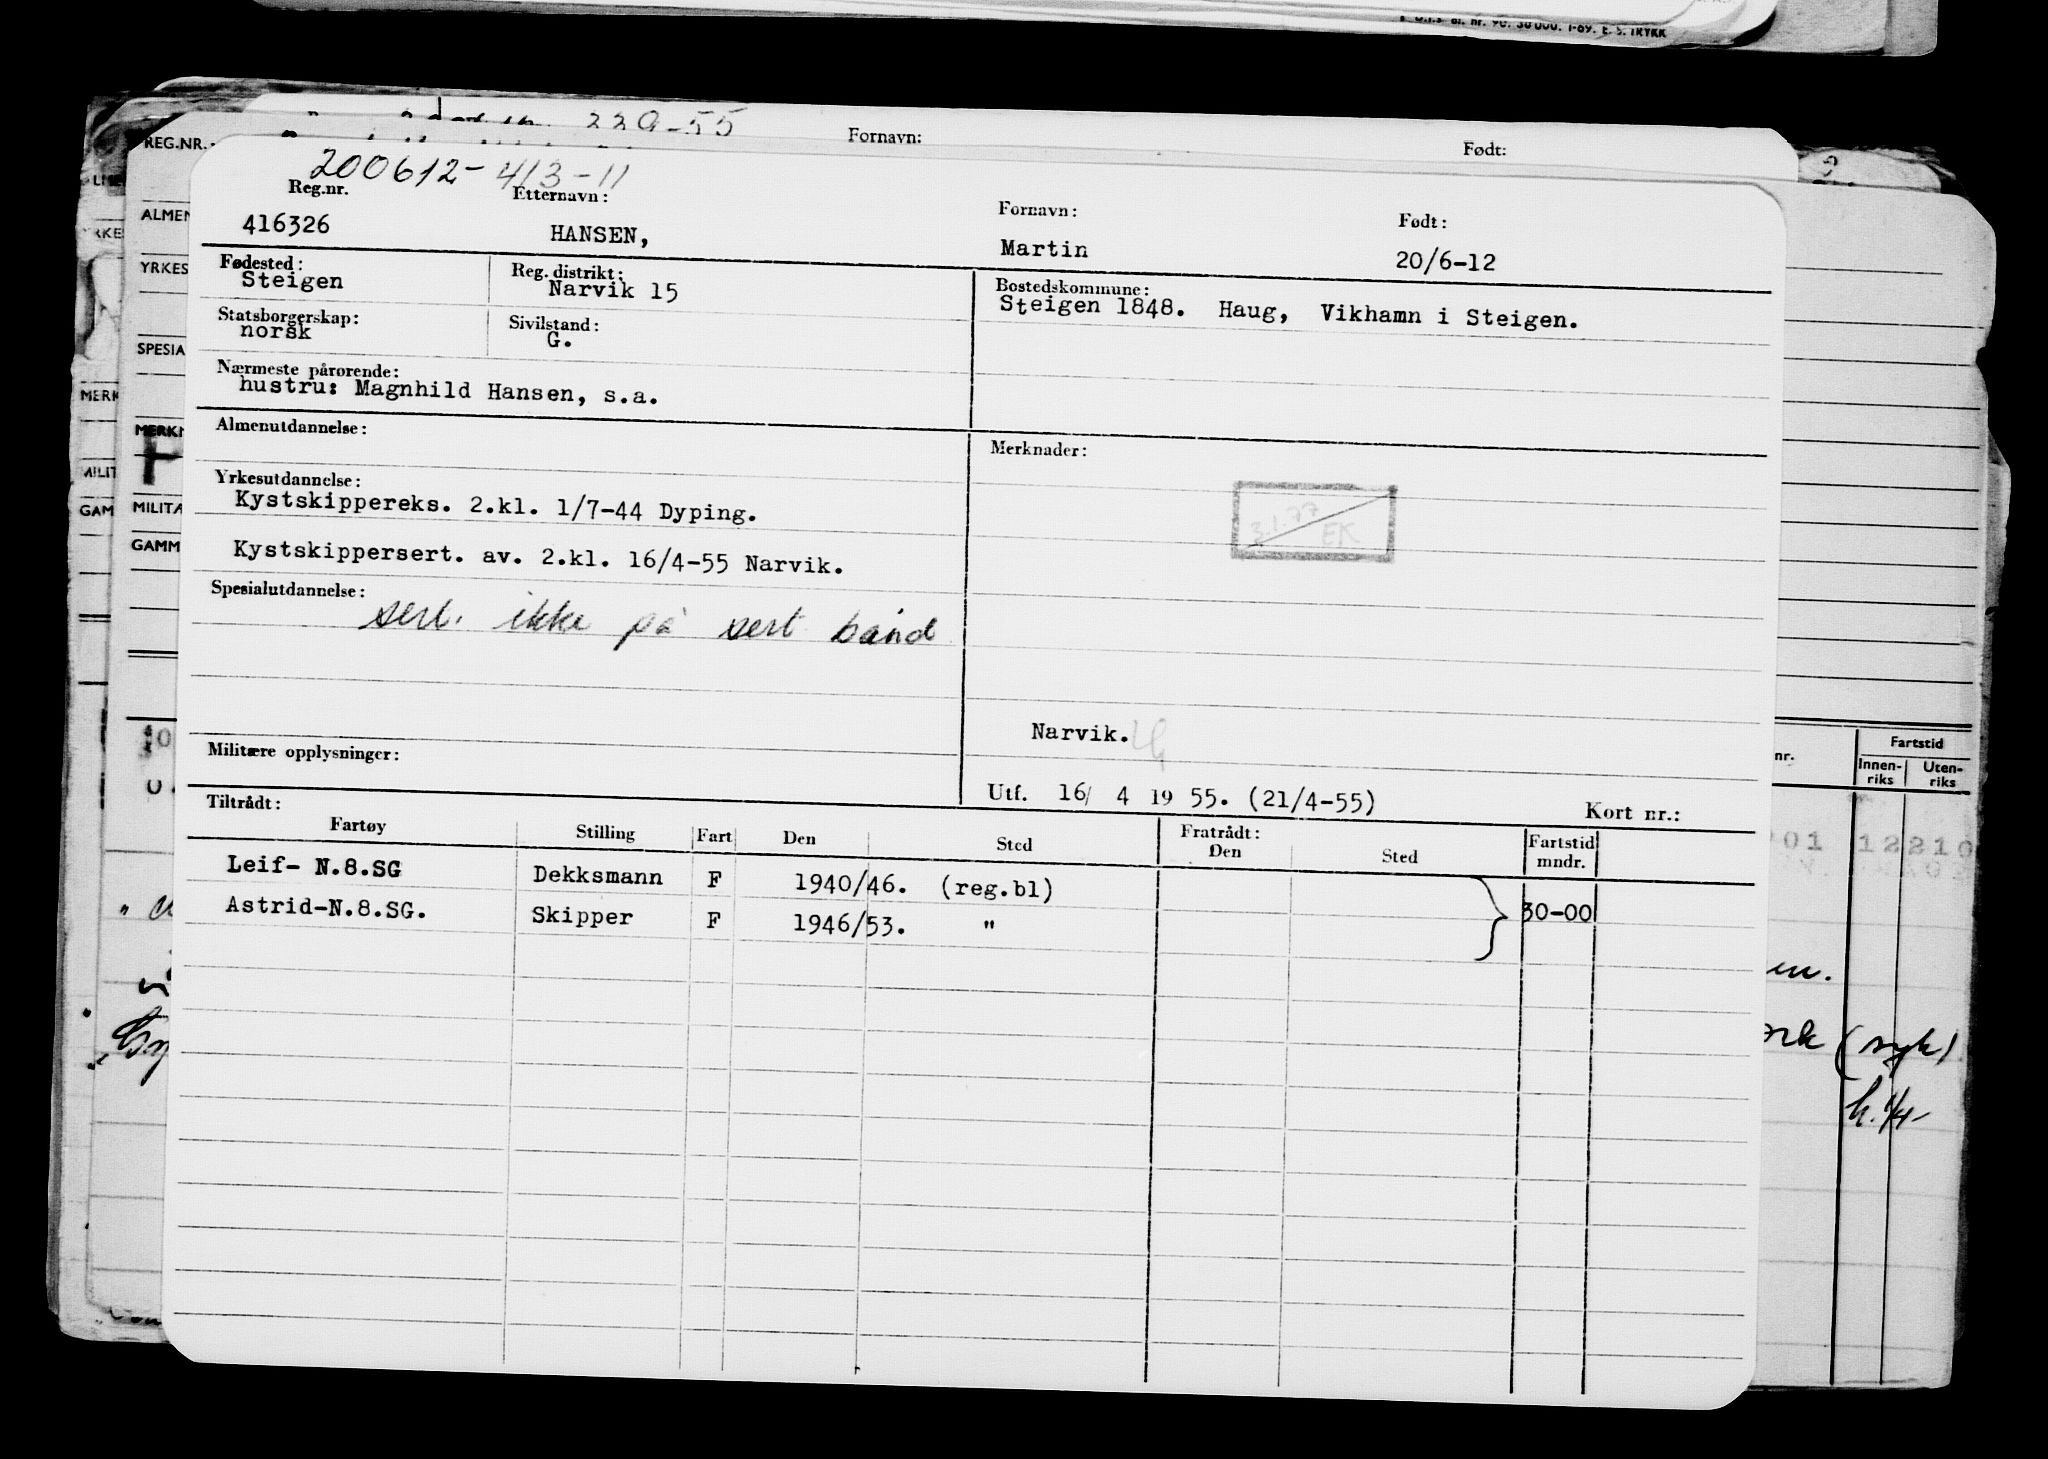 S. D.f.s. bl. nr. 90. 30 000. 1-69. E. S. TRYKK
229-55
REG.NR.: Fornavn: Født:
200612-413-11
Reg.nr. Etternavn: Fornavn: Født:
416326 HANSEN, Martin 20/6-12
Fødested: Reg. distrikt: Bostedskommune:
Steigen Narvik 15 Steigen 1848. Haug, Vikhamn i Steigen.
Statsborgerskap: Sivilstand:
norsk G.
Nærmeste pårørende:
hustru: Magnhild Hansen, s.a.
Almenutdannelse: Merknader:
Yrkesutdannelse:
Kystskippereks. 2.kl. 1/7-44 Dyping.
3.1.77 EK
Kystskippersert. av. 2.kl. 16/4-55 Narvik.
Spesialutdannelse:
sert. ikke på sert bånd
Narvik.
Militære opplysninger:
Utf. 16/ 4 19 55. (21/4-55) Kort nr.:
Tiltrådt: Fratrådt:
Fartøy Stilling Fart Den Sted Den Sted Fartstid mndr.
Leif- N.8.SG Dekksmann F 1940/46. (reg.bl)
Astrid-N.8.SG. Skipper F 1946/53. " 30-00
ALMEN
YRKES
SPESIA
MERK
MERKN
MILIT
MILITÆ
GAM
GAMM
nr. Fartstid
Innen-riks Uten-riks
01 12210
en.
ork (syk)
h. 1/4-